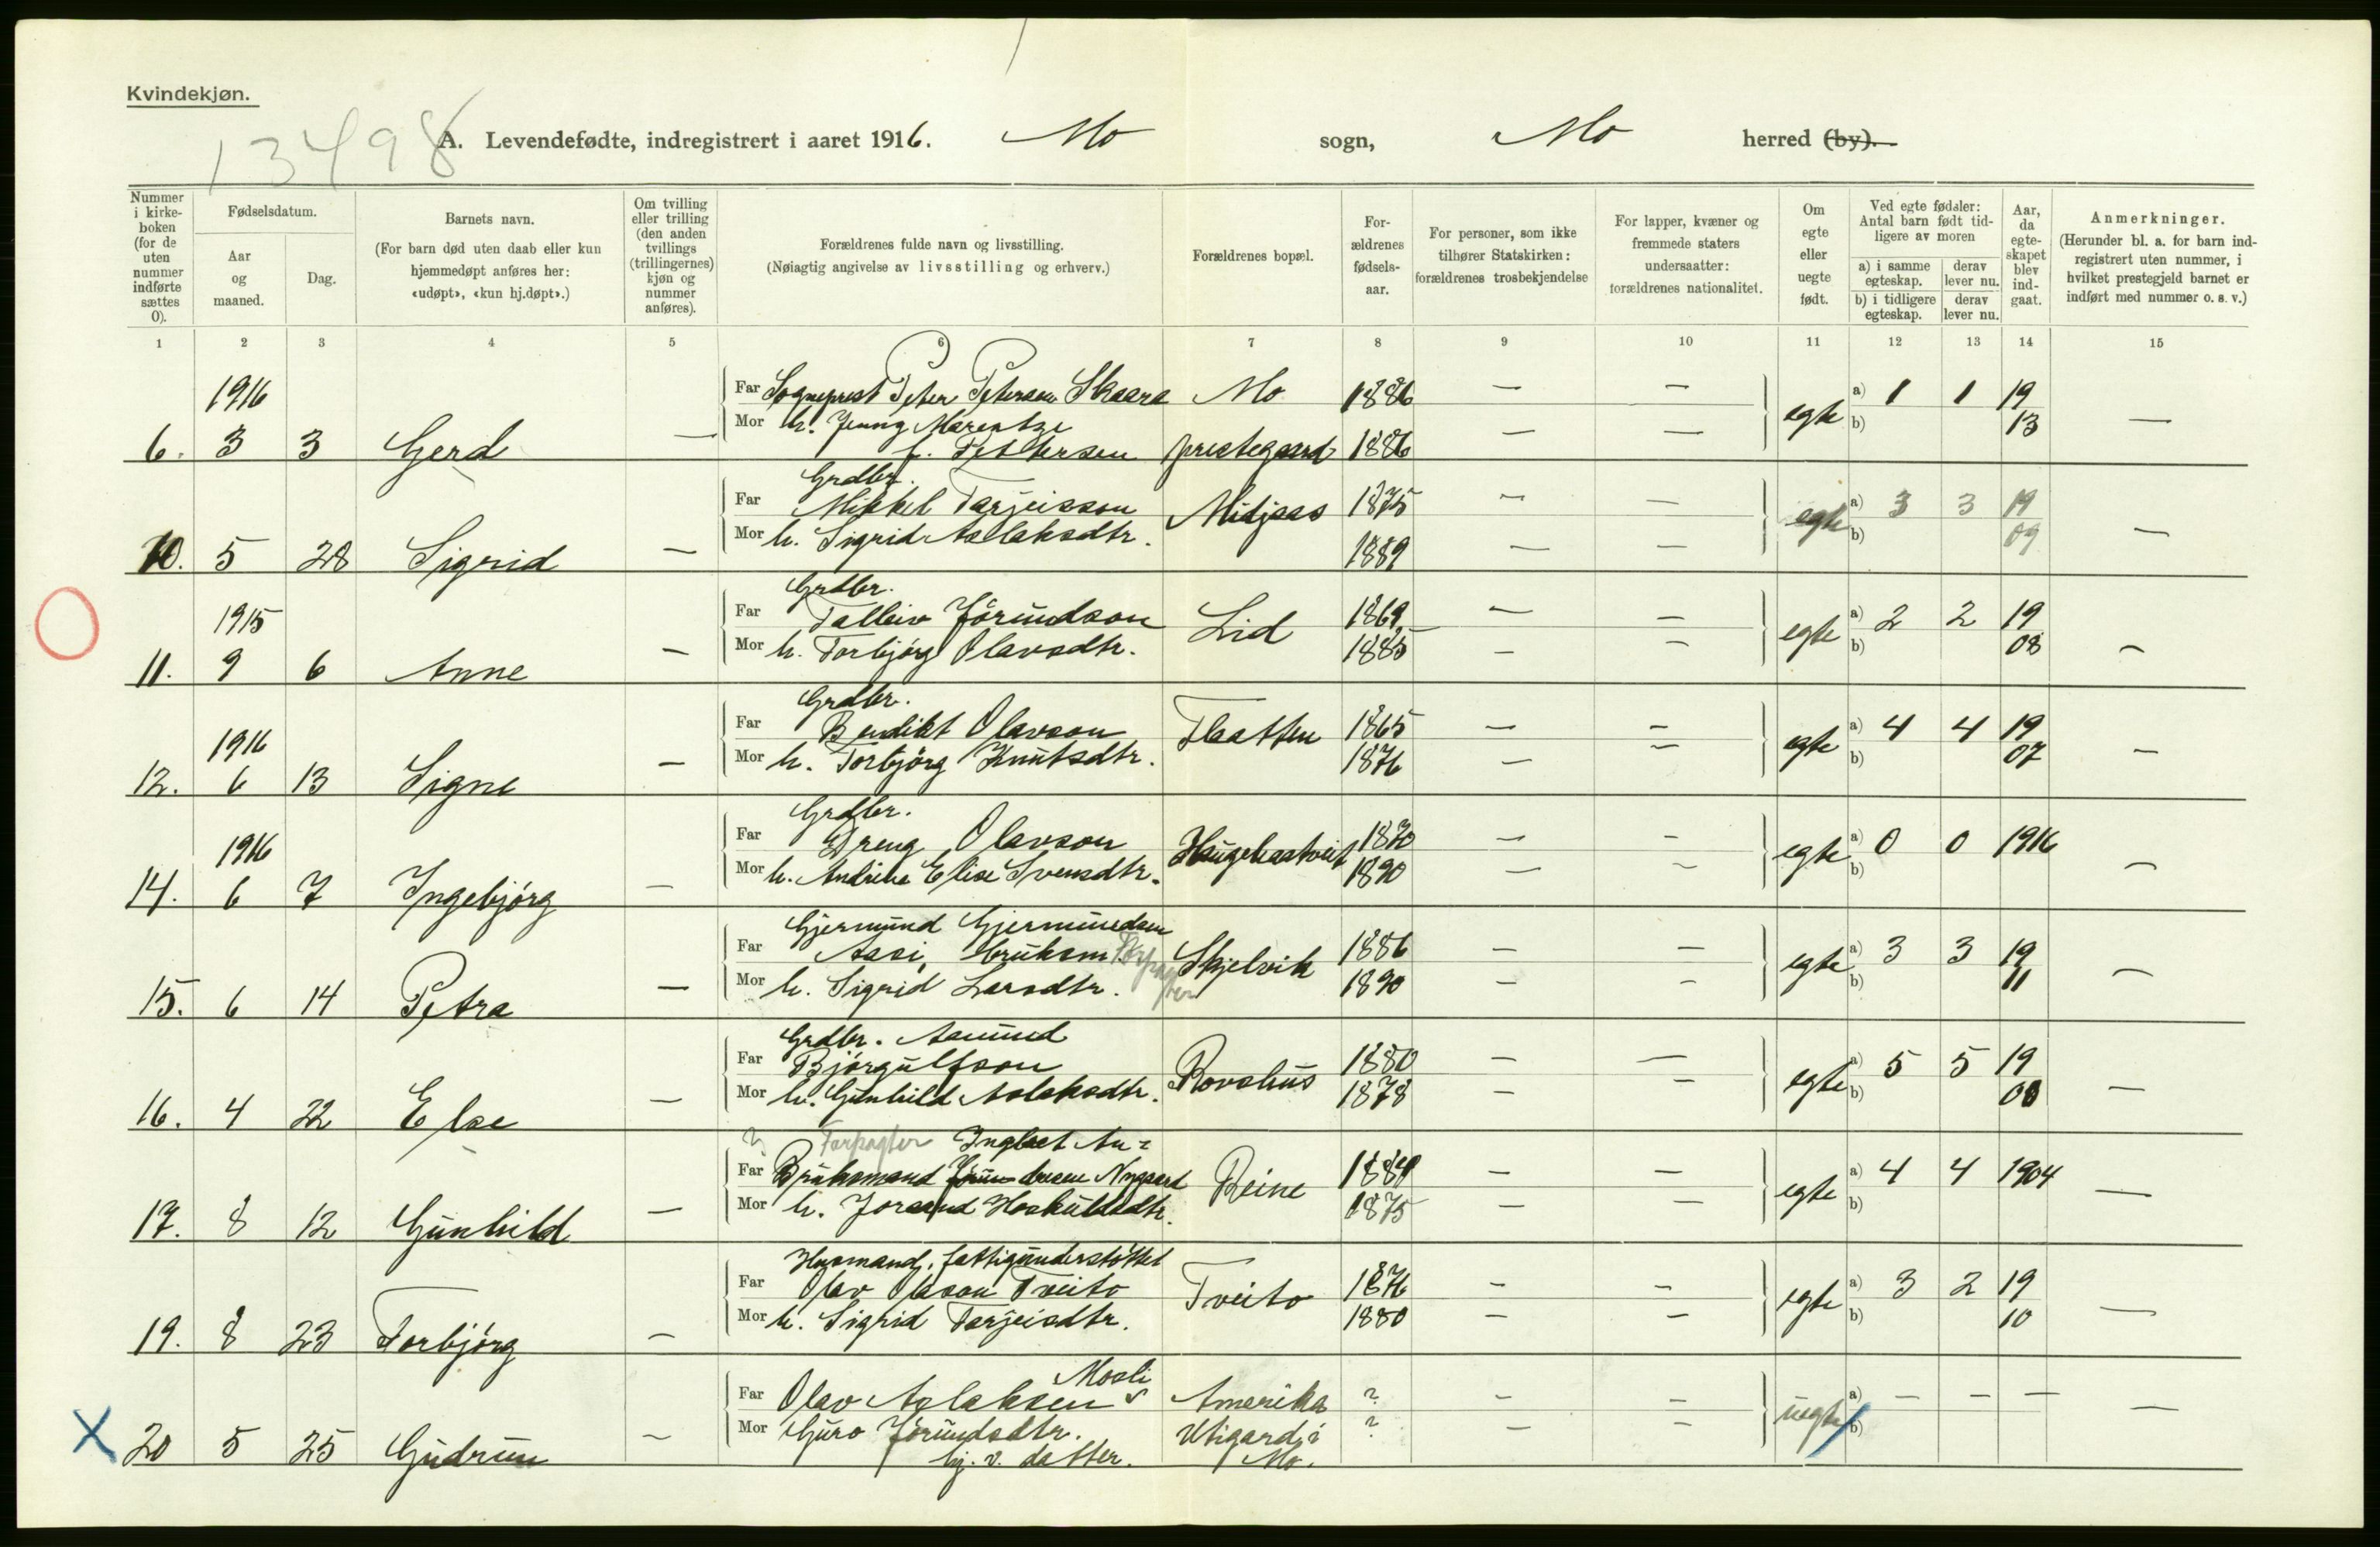 Kvindekjøn.
13498
A. Levendefødte, indregistrert i aaret 1916. Mo sogn, Mo herred (by).
Nummer i kirkeboken (for de uten nummer indførte sættes 0).
Fødselsdatum.
Aar og maaned.
Dag.
Barnets navn.
(For barn død uten daab eller kun hjemmedøpt anføres her: «udøpt», «kun hj.døpt».)
Om tvilling eller trilling (den anden tvillings (trillingernes) kjøn og nummer anføres).
Forældrenes fulde navn og livsstilling.
(Nøiagtig angivelse av livsstilling og erhverv.)
Forældrenes bopæl.
Forældrenes fødselsaar.
For personer, som ikke tilhører Statskirken: forældrenes trosbekjendelse
For lapper, kvæner og fremmede staters undersaatter: forældrenes nationalitet.
Om egte eller uegte født.
Ved egte fødsler: Antal barn født tidligere av moren
a) i samme egteskap.
derav lever nu.
b) i tidligere egteskap.
derav lever nu.
Aar, da egteskapet blev indgaat.
Anmerkninger.
(Herunder bl. a. for barn indregistrert uten nummer, i hvilket prestegjeld barnet er indført med nummer o. s. v.)
1 2 3 4 5 6 7 8 9 10 11 12 13 14 15
1916 Far Sogneprest Peter Petersen Skaara Mo 1886 — — a) 1 1 19
6. 3 3 Gerd — Mor h. Jenny f. Pettersen prestegaard 1886 — — egte b) 13 —
Grdbr.
Far Mikkel Tarjeisson Midjaas 1875 — — a) 3 3 19
10. 5 28 Sigrid — Mor h. Sigrid Aslaksdtr. 1889 — — egte b) 09 —
Grdbr.
1915 Far Talleiv Jörundson Lid 1869 — — a) 2 2 19
11. 9 6 Anne — Mor h. Torbjörg Olavsdtr. 1885 — — egte b) 08 —
Grdbr.
1916 Far Bendikt Olavson Flatten 1865 — — a) 4 4 19
12. 6 13 Signe — Mor h. Torbjörg Knutsdtr. 1876 — — egte b) 07 —
Grdbr.
1916 Far Dreng Olavson 1870 — — a) 0 0 1916
14. 6 7 Ingebjörg — Mor h. Andrine Elise Svensdtr. 1890 — — egte b) —
Gjermund Gjermundsen
Far Aasi, bruksm Forpagter Skjelvik 1886 — — a) 3 3 19
15. 6 14 Petra — Mor h. Sigrid Larsdtr. 1890 — — egte b) 11 —
Grdbr. Aamund
Far Björgulfson Rovshus 1880 — — a) 5 5 19
16. 4 22 Else — Mor h. Gunhild Aslaksdtr. 1878 — — egte b) 00 —
? Forpagter Ingbret An-
Far Bruksmand dresen Nygaard Reine 1884 — — a) 4 4 1904
17. 8 12 Gunhild — Mor h. Joraand Hoskuldsdtr. 1875 — — egte b) —
Husmand, fattigunderstöttet
Far Olav Olavson Tveito Tveito 1876 — — a) 3 2 19
19. 8 23 Torbjörg — Mor h. Sigrid Tarjeisdtr. 1880 — — egte b) 10 —
Mosli
Far Olav Aslaksen Amerika ? — — a) — — —
X 20 5 25 Gudrun — Mor Guro Jörundsdtr. Utigard i ? — — uegte b) —
hj. v. datter. Mo.